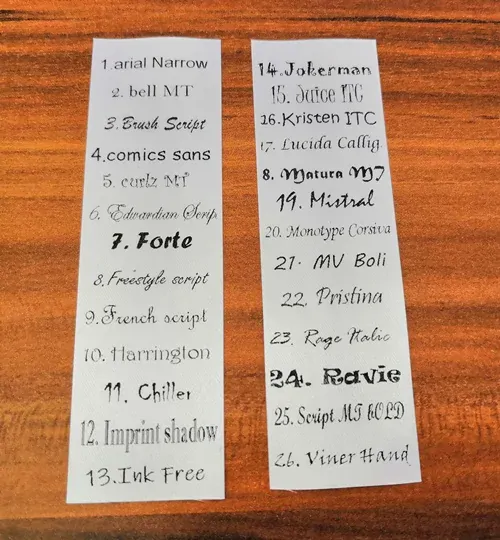 1.arial Narrow
2. bell MT
3. Brush Script
4.comics sans
5. curlz MT
6. Edwardian Scrip
7. Forte
8. Freestyle script
9. French script
10. Harrington
11. Chiller
12. Imprint shadow
13.Ink Free
14.Jokerman
15. Juice ITC
16.Kristen ITC
17. Lucida Callig.
8. Matura M7
19. Mistral
20. Monotype Corsiva
21. MV Boli
22. Pristina
23. Rage Italic
24. Ravie
25. Script MT bOLD
26. Viner Hand